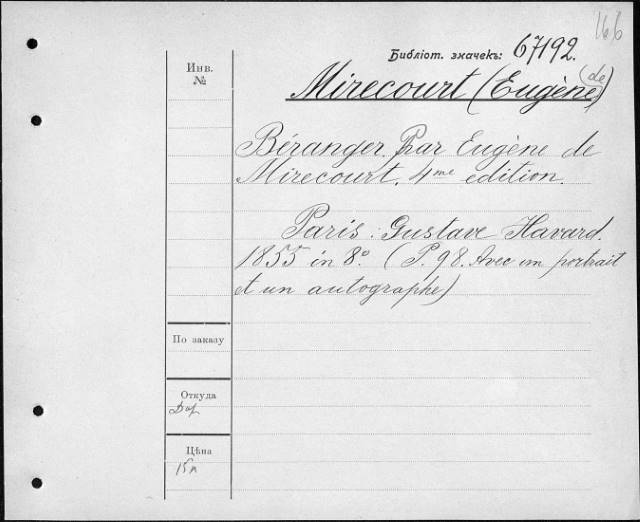 166
Библіот. значекъ: 67192.
Инв.
№
Mirecourt (Eugène (de)
Béranger. Par Eugène de
Mirecourt. 4me edition.
Paris: Gustave Havard.
1855 in 8o. (P. 98. Avec un portrait
et un autographe)
По заказу
Откуда
Дар
Цѣна
15 к